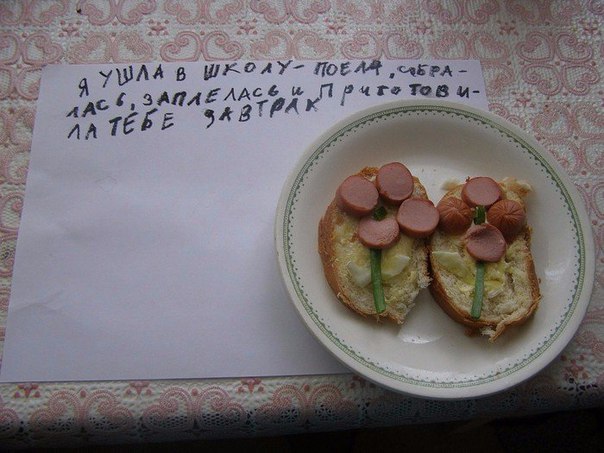 Я УШЛА В ШКОЛУ - ПОЕЛА, СОБРА-
ЛАСЬ, ЗАПЛЕЛАСЬ И ПРИГОТОВИ-
ЛА ТЕБЕ ЗАВТРАК